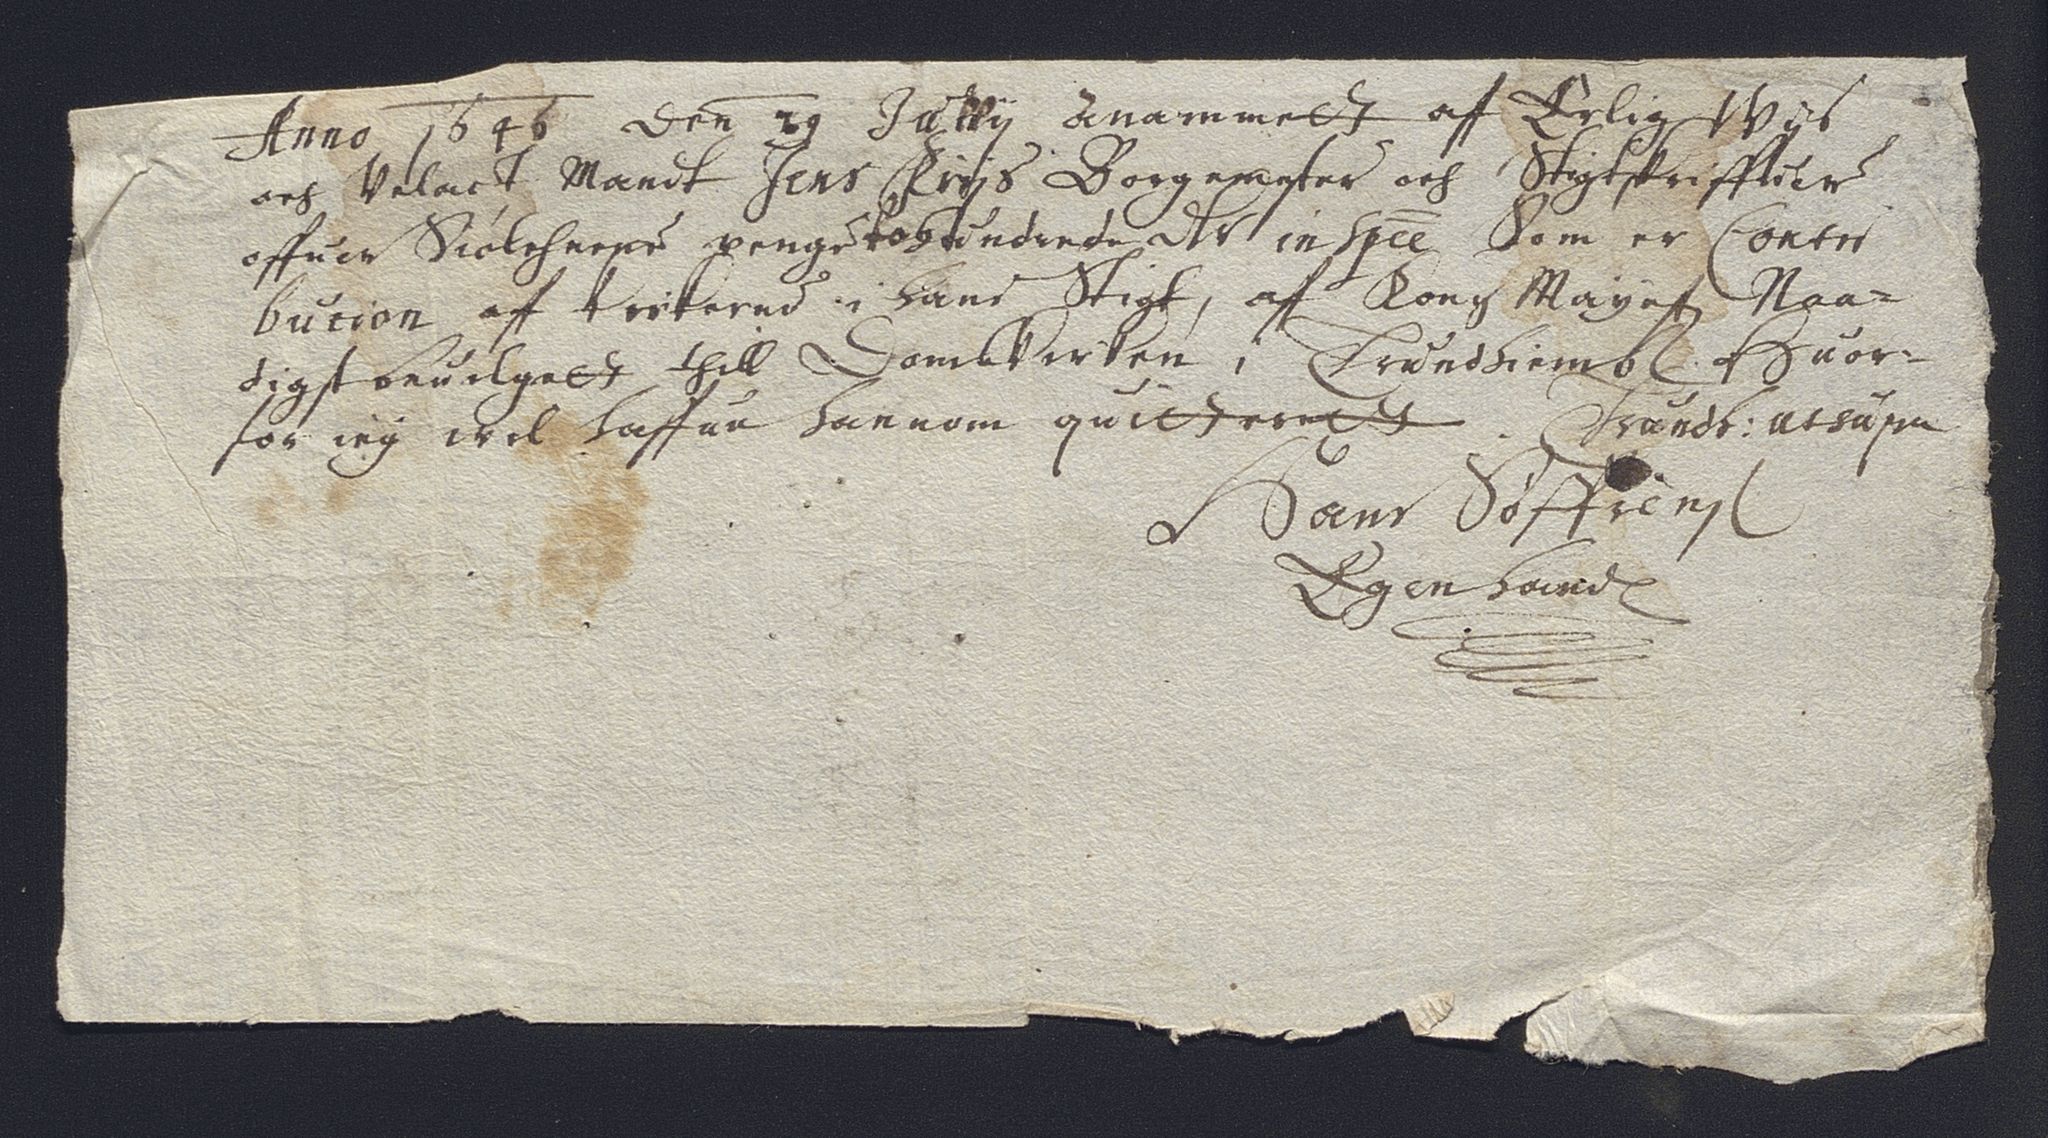 Anno 1646 den 29 Julij anammett aff Erlig Wijs
och Velact Mandt Jens Friis Borgemester och Stigtskriffuer
offuer penge tohundrede dlr in spee Som er Contri
bucion aff kirkerne i hans Stigt, af Kong Mayest Naa=
digst beuilgett thill Domkirken i Trundhiemb. Huor-
for ieg vil haffue hannom quitterett. Trundh: ut supra
Hans Søffrens
Egen handt